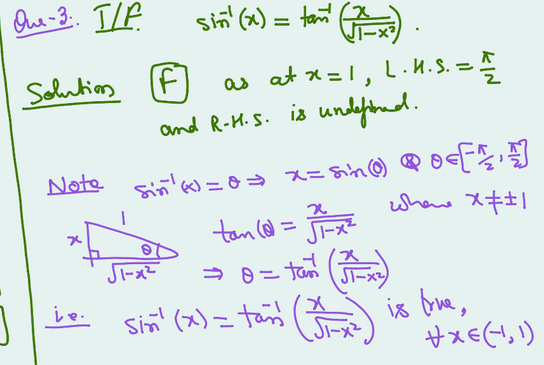 Que-3:. T/F. sin⁻¹(x) = tan⁻¹(x/√(1-x²)).
Solution F as at x=1, L.H.S. = π/2
and R.H.S. is undefined.
Note sin⁻¹(x) = θ ⇒ x = sin(θ) & θ∈[-π/2, π/2]
x 1 θ √(1-x²) tan(θ) = x/√(1-x²) where x≠±1
⇒ θ = tan⁻¹(x/√(1-x²))
i.e. sin⁻¹(x) = tan⁻¹(x/√(1-x²)) is true,
∀ x∈(-1,1)